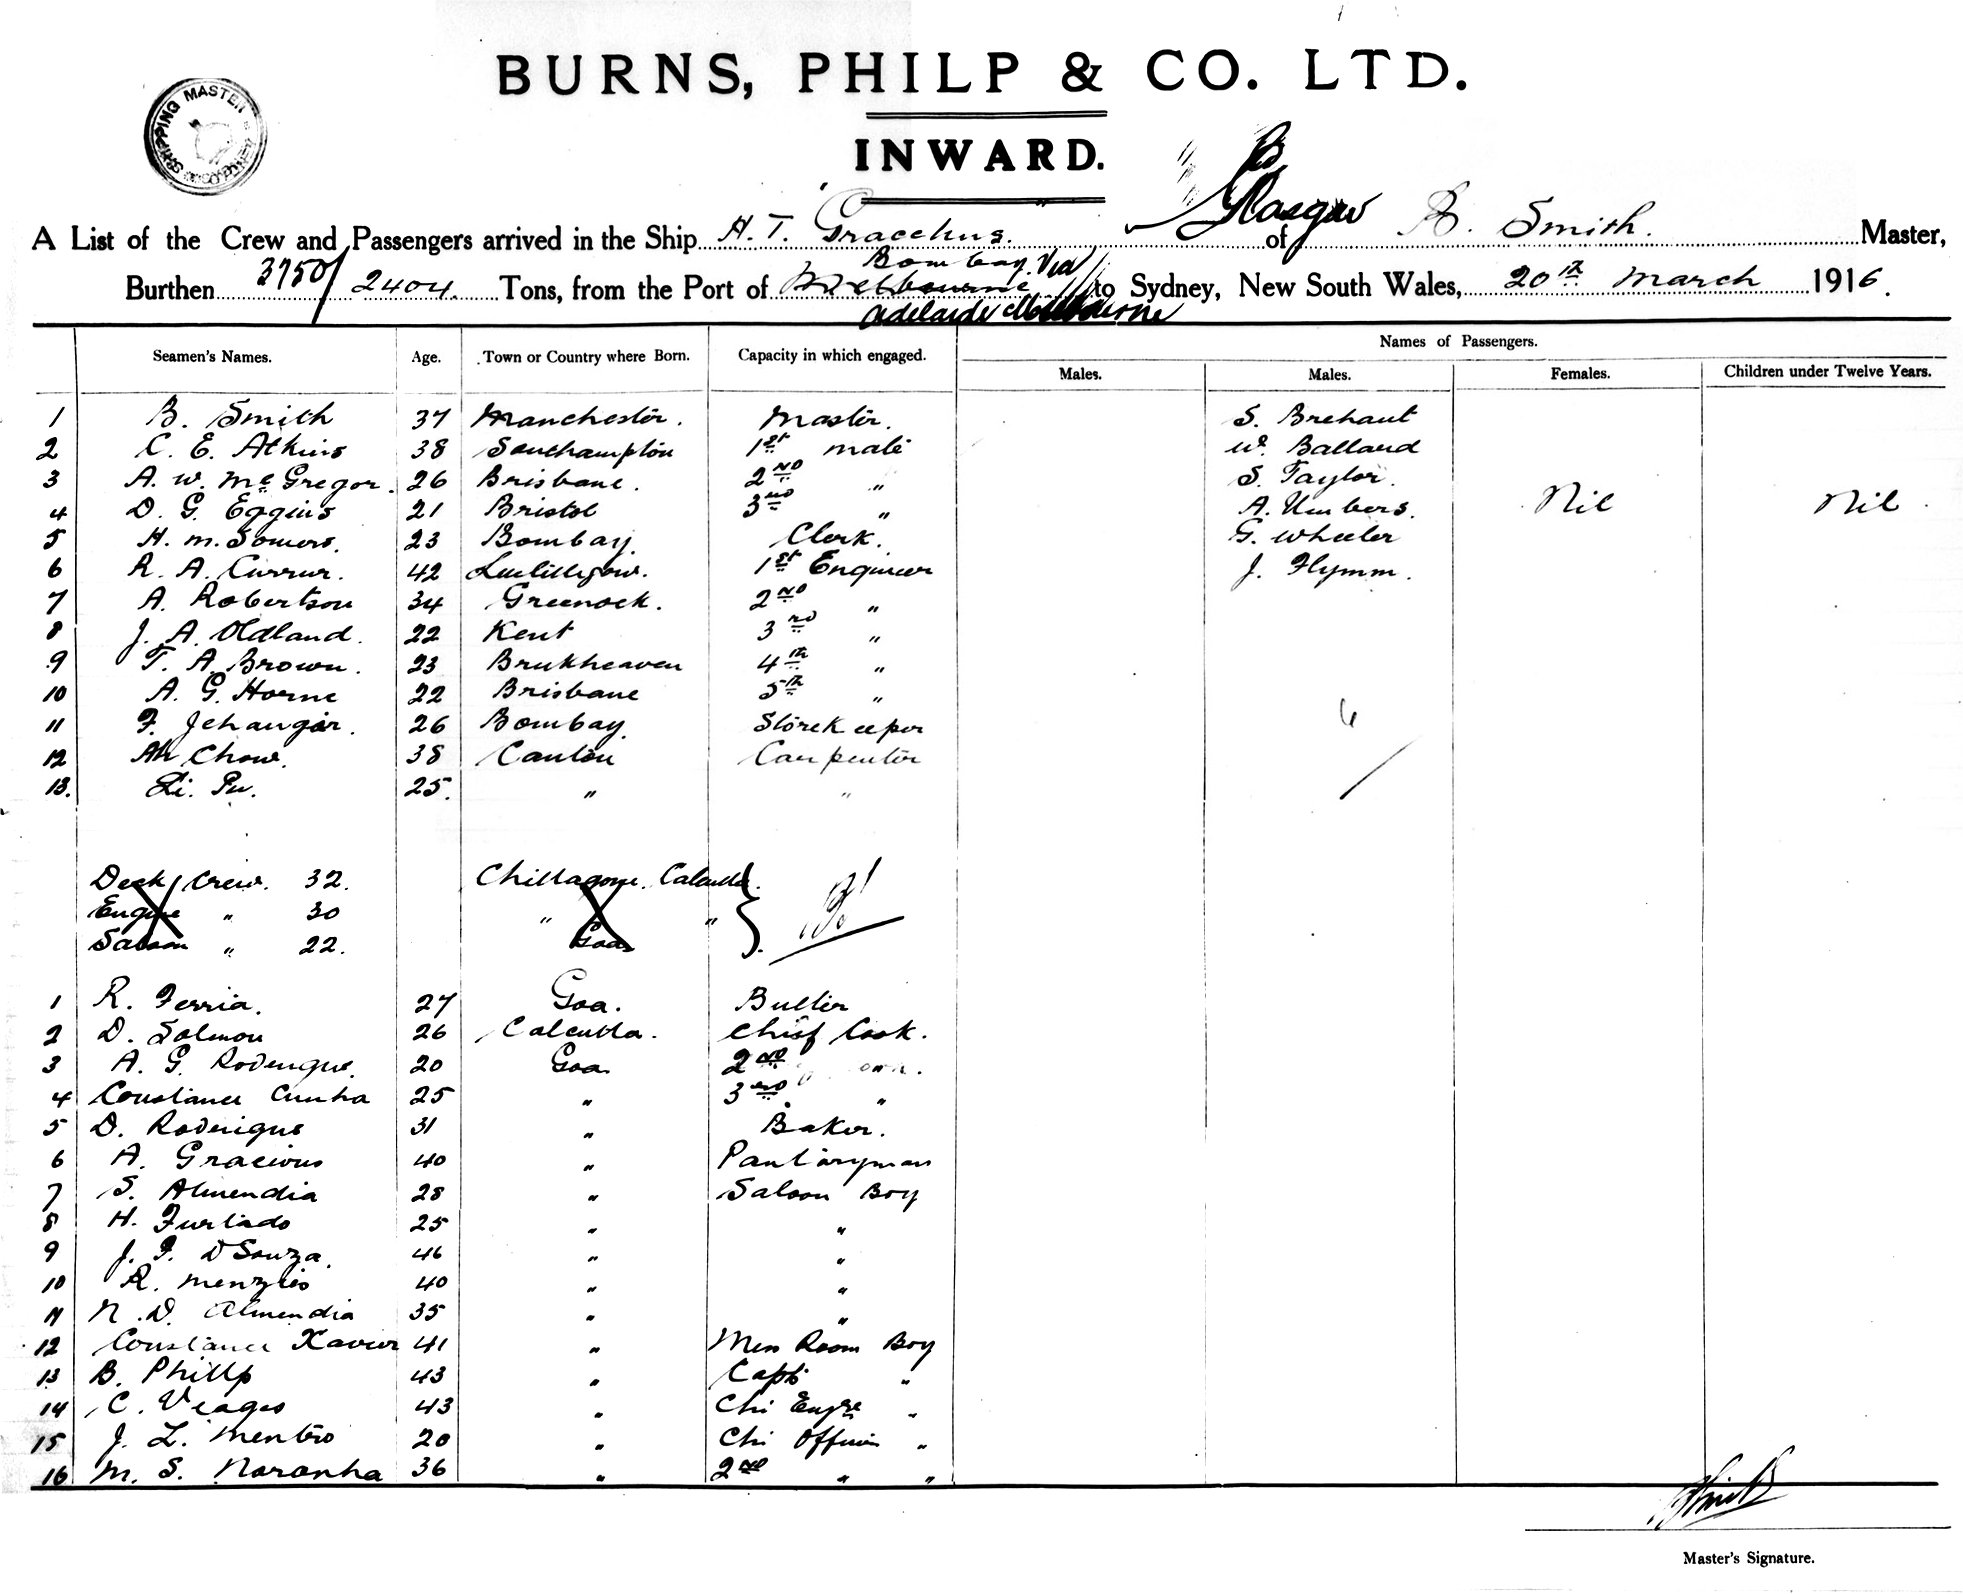 BURNS, PHILP & CO. LTD.
SHIPPING MASTER
INWARD.
A List of the Crew and Passengers arrived in the Ship H. T. Gracchus. of Glasgow B. Smith. Master,
Burthen 3750/2404. Tons, from the Port of Melbourne Bombay Via Adelaide Melbourne to Sydney, New South Wales, 20th March 1916.
Names of Passengers.
Seamen's Names. Age. Town or Country where Born. Capacity in which engaged. Males. Males. Females. Children under Twelve Years.
1 B. Smith 37 Manchester. Master. S. Brehaut
2 C. E. Atkins 38 Southampton 1st mate W. Balland
3 A. W. McGregor. 26 Brisbane. 2nd " S. Taylor.
4 D. G. Eggins 21 Bristol 3rd " A. Umbers. Nil Nil.
5 H. M. Somers. 23 Bombay. Clerk. G. Wheeler
6 R. A. Currur. 42 Linlithgow. 1st Engineer J. Flymm.
7 A. Robertson 34 Greenock. 2nd "
8 J. A. Oldland. 22 Kent 3rd "
9 T. A. Brown. 23 Brukheaven 4th "
10 A. G. Horne 22 Brisbane 5th "
11 F. Jehangir. 26 Bombay. Storekeeper
6
12 Ah Chow. 38 Canton Carpenter
13. Li. Pu. 25. " "
Deck Crew. 32. Chittagong. Calcutta.
Engine " 30 " "
Saloon " 22. Goa
1 R. Ferria. 27 Goa. Butler
2 D. Solmon 26 Calcutta. Chief Cook.
3 A. G. Roderigue. 20 Goa 2nd
4 Constance Cunha 25 " 3rd "
5 D. Roderigue 31 " Baker.
6 A. Gracious 40 " Pantaryman
7 S. Almendia 28 " Saloon Boy
8 H. Furtado 25 " "
9 J. F. DSouza. 46 " "
10 R. Menzies 40 " "
11 N. D. Almendia 35 " "
12 Constance Xavier 41 " Mess Room Boy
13 B. Phillp 43 " Capt "
14 C. Viages 43 " Chi Engre "
15 J. L. Mentro 20 " Chi Officer "
16 M. S. Noronha 36 " 2nd " "
Smith
Master's Signature.